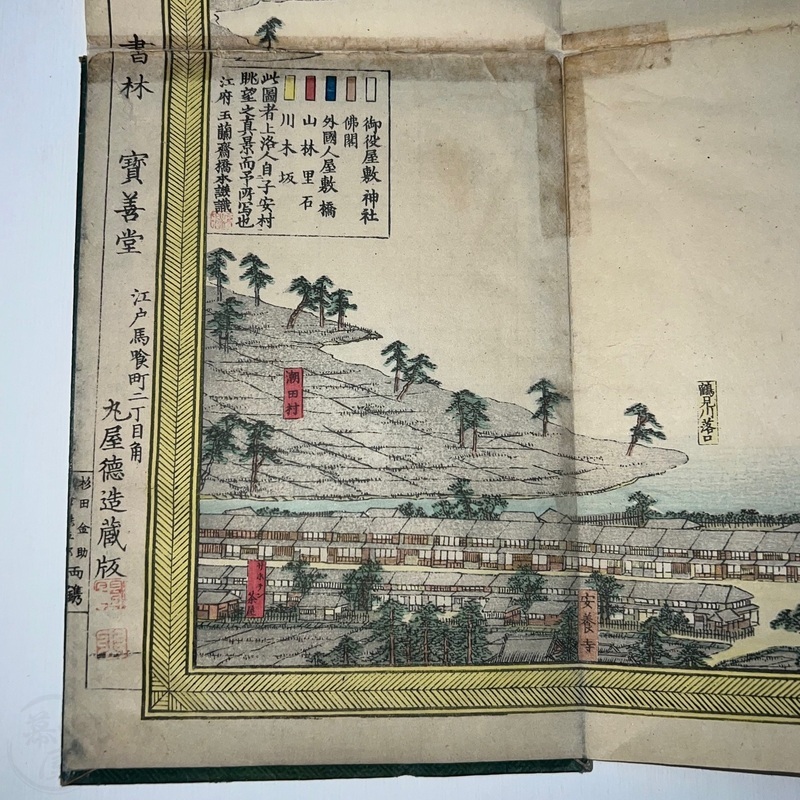 御役屋敷 神社
佛閣
外國人屋敷 橋
山林里石
川木坂
此圖者上洛人自子安村
眺望之真景而予所寫也
江府 玉蘭齋橋本謙識
書林 寶善堂
江戸馬喰町二丁目角
丸屋德造藏版
杉田金助
両鐫
潮田村
鶴見川落口
安養寺